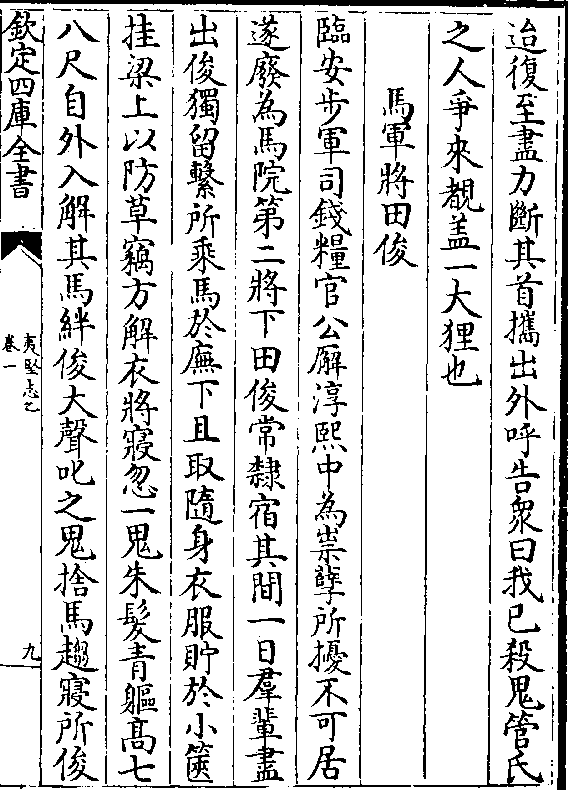 迨復至盡力斷其首攜出外呼告衆曰我已殺鬼管氏
之人爭來覩盖一大狸也
馬軍將田俊
臨安步軍司錢糧官公廨淳熙中為祟孽所擾不可居
遂廢為馬院第二將下田俊常隸宿其間一日羣輩盡
出俊獨留繫所乘馬於廡下且取隨身衣服貯於小篋
挂梁上以防草竊方解衣將寢忽一鬼朱髮青軀髙七
八尺自外入解其馬絆俊大聲叱之鬼捨馬趨寢所俊
欽定四庫全書
夷堅志乙
卷一
九